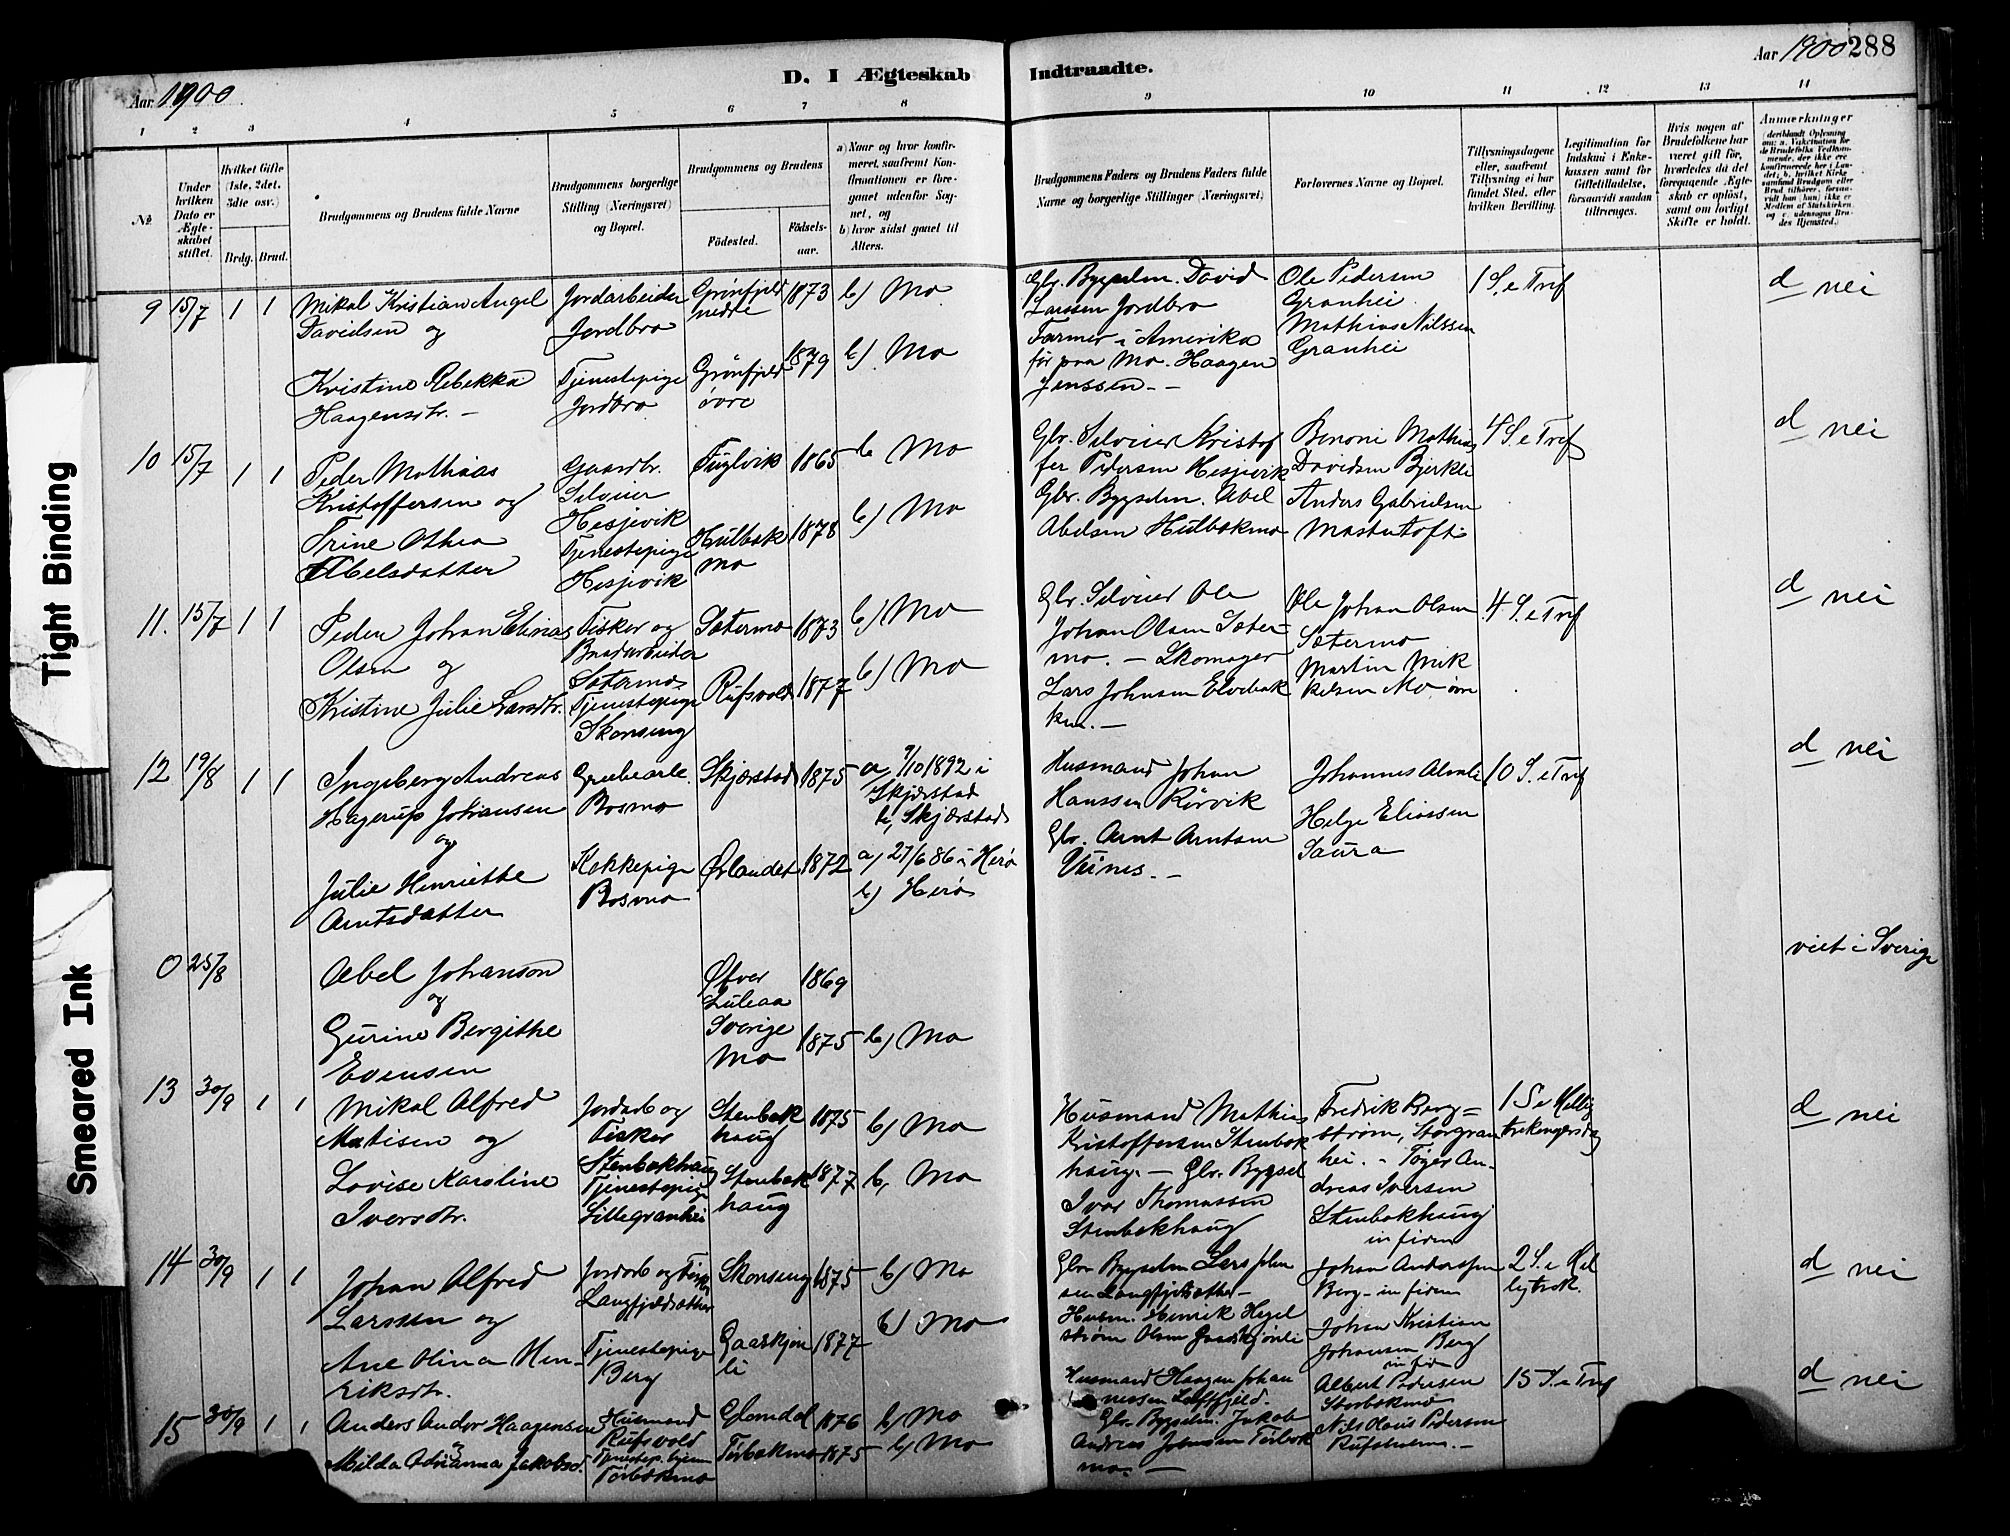 Aar 1900.
D. I Ægteskab
Indtraadte.
Aar 1900
288
1 2 3 4 5 6 7 8
9 10 11 12 13 14
№
Under hvilken Dato er Ægteskabet stiftet.
Hvilket Gifte (1ste, 2det, 3die osv.)
Brdg. Brud.
Brudgommens og Brudens fulde Navne
Brudgommens borgerlige Stilling (Næringsvei) og Bopæl.
Brudgommens og Brudens
Födested.
Födsels-aar.
a) Naar og hvor konfirmeret, saafremt Konfirmationen er foregaaet udenfor Sognet, og
b) hvor sidst gaaet til Alters.
Brudgommens Faders og Brudens Faders fulde Navne og borgerlige Stillinger (Næringsvei)
Forlovernes Navne og Bopæl.
Tillysningsdagene eller, saafremt Tillysning ei har fundet Sted, efter hvilken Bevilling.
Legitimation for Indskud i Enkekassen samt for Giftetilladelse, forsaavidt saadan tiltrænges.
Hvis nogen af Brudefolkene har været gift för, hvorledes da det foregaaende Ægteskab er oplöst, samt om lovligt Skifte er holdt.
Anmærkninger
9 15/7 1 1
Mikal Kristian Angel
Davidsen og
Kristine Rebekka
Haagensdtr. –
Jordarbeider
Jordbro
Tjenestepige
Jordbro
Grönfjeld
nedre
Grönfjeld
övre
1873
1879
b) Mo
b) Mo
Gbr. Bygselm. David
Larssen Jordbro
Farmer i Amerika
för paa Mo. Haagen
Jenssen. –
Ole Pedersen
Granhei.
Mathias Nilssen
Granhei
1 S. e Tref
d nei
10 15/7 1 1
Peder Mathias
Kristoffersen og
Trine Othea
Abelsdatter
Gaardbr.
Selveier
Hesjevik
Tjenestepige
Hesjevik
Fuglvik
Hulbæk
mo
1865
1878
b Mo
b) Mo
Gbr. Selveier Kristof
fer Pedersen Hesjevik
Gbr. Bygselm. Abel
Abelsen Hulbækmo
Benoni Mathias
Davidsen Bjerkli
Anders Gabrielsen
4 S. e Tref
d nei
11. 15/7 1 1
Peder Johan Elinas
Olsen og
Kristine Julie Larsdtr.
Fisker og
Sætermo
Tjenestepige
Skonseng
Sætermo
Rufsvold
1873
1877
b) Mo
b) Mo
Gbr. Selveier Ole
Johan Olsen Sæter-
mo. – Skomager
Lars Johnsen Elvebak
ken. –
Ole Johan Olsen
Sætermo
Martin Mik
kelsen Mo-
4 S. e Tref
d nei
12 19/8 1 1
Ingeberg Andreas
Hagerup Johansen
og
Julie Henriette
Arntsdatter
Grubearb.
Bosmo
Kokkepige
Bosmo
Skjærstad
Ørlandet
1875
1872
a, 9/10 1892 i
Skjærstad
b, Skjærstad
a) 27/6 86 i Herö
b) Herö
Husmand Johan
Hanssen Rörvik
Gbr. Arnt Arntsen
Johannes
Helge Eliassen
Saura
10 S. e Tref
d nei
0 25/8
Abel Johanson
og
Gurine Bergithe
Evensen
Öfver
Luleaa
Sverige
Mo
1869
1875
b) Mo
viet i Sverige
13 30/9 1 1
Mikal Alfred
Matisen og
Lovise Karoline
Iversdtr.
Jordarb og
Fisker
Stenbækhaug
Tjenestepige
Lillegranhei
Stenbæk
haug
Stenbæk
haug
1875
1877
b) Mo
b, Mo
Husmand Mathias
Kristoffersen Stenbæk
haug. – Gbr. Bygsel
Ivar Thomassen
Stenbækhaug
Fredrik Berg=
ström, Storgran
hei. – Töger An-
dreas Iversen
Stenbækhaug
in fidem
1 S e Hellig
trekongersdag
d nei
14 30/9 1 1
Johan Alfred
Larssen og
Ane Olina Hen-
riksdtr.
Jordarb og Fisk
Langfjeldsæther
Tjenestepige
Berg
Skonseng
Gaaskjön
li
1875
1877
b) Mo
b) Mo
Gbr Bygselm Lars John
sen Langfjeldsæther –
Husm. Henrik Hegel
ström Olsen Gaaskjönli
Johan Anderssen
Berg – in fidem
Johan Kristian
Johansen Berg
in fid
2 S. e Hel
ligtrek.
d nei
15 30/9 1 1
Anders Andor Haagensen
Milda Adrianna Jakobsd.
Husmand
Rufsvold
Tjenestep. hjem
Törbækmo
Glomdal
Törbækmo
1876
1875
b) Mo
b) Mo
Husmand Haagen Johan
nessen
Gbr. Bygselm. Jakob
Andreas Johnsen Törbæk
mo. –
Albert Pedersen
Storbækmo
Nils Olaus Pedersen
15 S. e Tref
d nei
Tight Binding
Smeared Ink